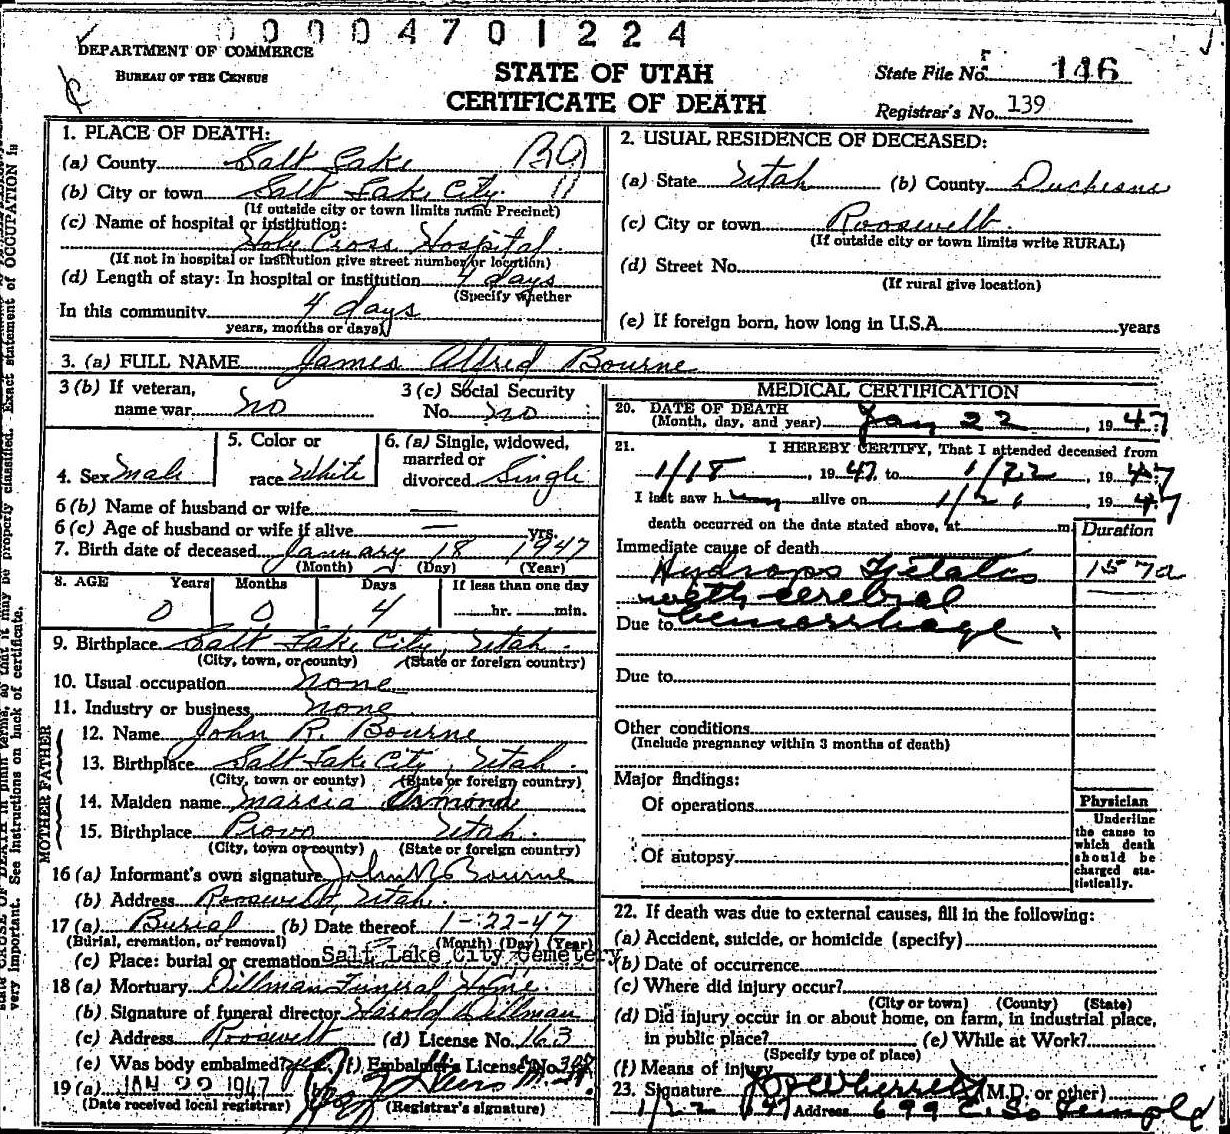 0 0 0 4 7 0 1 2 2 4
DEPARTMENT OF COMMERCE
BUREAU OF THE CENSUS
STATE OF UTAH
CERTIFICATE OF DEATH
State File No. 146
Registrar's No. 139
1. PLACE OF DEATH:
(a) County Salt Lake
(b) City or town Salt Lake City
(If outside city or town limits name Precinct)
(c) Name of hospital or institution:
Holy Cross Hospital
(If not in hospital or institution give street number or location)
(d) Length of stay: In hospital or institution 4 days
(Specify whether
In this community 4 days
years, months or days)
2. USUAL RESIDENCE OF DECEASED:
(a) State Utah (b) County Duchesne
(c) City or town Roosevelt
(If outside city or town limits write RURAL)
(d) Street No.
(If rural give location)
(e) If foreign born, how long in U.S.A. years
3. (a) FULL NAME James Alfred Bourne
3 (b) If veteran, name war no
3 (c) Social Security No. no
4. Sex Male
5. Color or race White
6. (a) Single, widowed, married or divorced Single
6 (b) Name of husband or wife —
6 (c) Age of husband or wife if alive — yrs.
7. Birth date of deceased January 18 1947
(Month) (Day) (Year)
8. AGE Years Months Days If less than one day
0 0 4 hr. min.
9. Birthplace Salt Lake City, Utah.
(City, town, or county) (State or foreign country)
10. Usual occupation none
11. Industry or business none
FATHER
12. Name John R. Bourne
13. Birthplace Salt Lake City, Utah.
(City, town or county) (State or foreign country)
MOTHER
14. Maiden name Marcia Ormond
15. Birthplace Provo Utah.
(City, town or county) (State or foreign country)
16 (a) Informant's own signature John R Bourne
(b) Address Roosevelt, Utah.
17 (a) Burial (b) Date thereof 1-22-47
(Burial, cremation, or removal) (Month) (Day) (Year)
(c) Place: burial or cremation Salt Lake City Cemetery
18 (a) Mortuary Dillman Funeral Home.
(b) Signature of funeral director Harold Dillman
(c) Address Roosevelt (d) License No. 163
(e) Was body embalmed? (f) Embalmer's License No.
19 (a) JAN 22 1947
(Date received local registrar) (Registrar's signature)
MEDICAL CERTIFICATION
20. DATE OF DEATH
(Month, day, and year) Jan 22, 1947
21. I HEREBY CERTIFY, That I attended deceased from
1/18, 1947, to 1/22, 1947
I last saw him alive on 1/21, 1947
death occurred on the date stated above, at m.
Duration
Immediate cause of death
Hydrops Fetalis
with cerebral
Due to hemorrhage
Due to
Other conditions
(Include pregnancy within 3 months of death)
Major findings:
Of operations
Of autopsy
Physician
Underline the cause to which death should be charged statistically.
22. If death was due to external causes, fill in the following:
(a) Accident, suicide, or homicide (specify)
(b) Date of occurrence
(c) Where did injury occur?
(City or town) (County) (State)
(d) Did injury occur in or about home, on farm, in industrial place,
in public place? (e) While at Work?
(Specify type of place)
(f) Means of injury
23. Signature (M.D. or other)
1/22 1947 Address 699 E. So Temple
very important. See instructions on back of certificate.